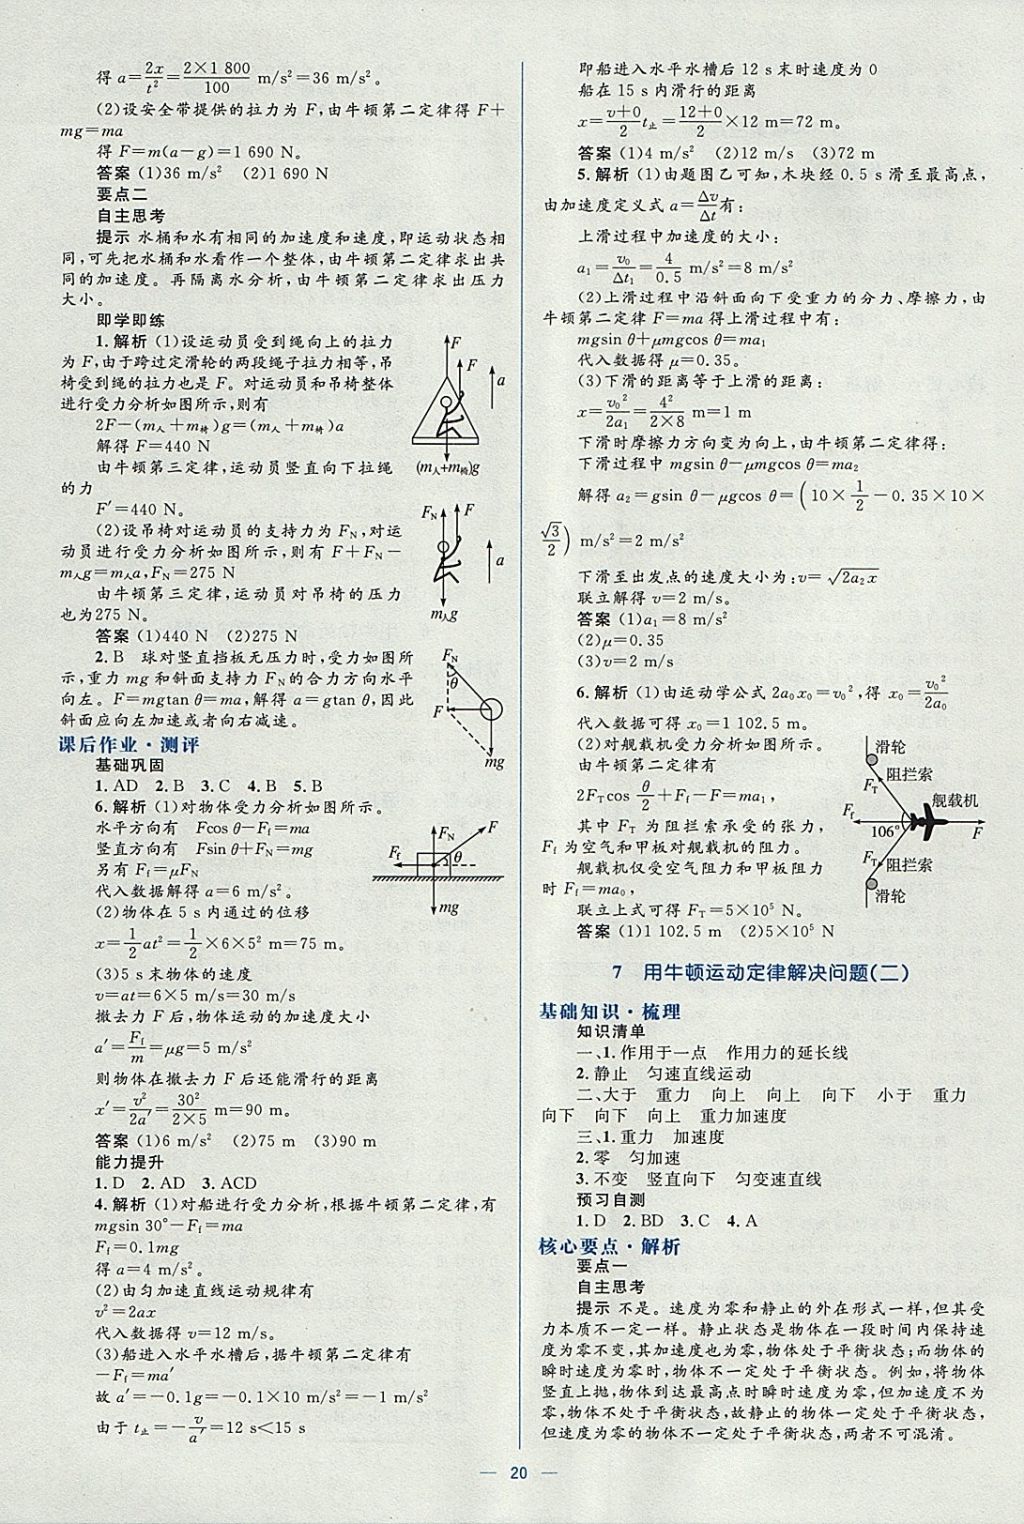 得 a=2x/t²=2×1 800/100 m/s²=36 m/s²。
(2)设安全带提供的拉力为 F,由牛顿第二定律得 F+
mg=ma
得 F=m(a-g)=1 690 N。
答案 (1)36 m/s² (2)1 690 N
要点二
自主思考
提示 水桶和水有相同的加速度和速度,即运动状态相
同,可先把水桶和水看作一个整体,由牛顿第二定律求出共
同的加速度。再隔离水分析,由牛顿第二定律求出压力
大小。
即学即练
1.解析 (1)设运动员受到绳向上的拉力
为 F,由于跨过定滑轮的两段绳子拉力相等,吊
椅受到绳的拉力也是 F。对运动员和吊椅整体
进行受力分析如图所示,则有
2F-(m人+m椅)g=(m人+m椅)a
解得 F=440 N
由牛顿第三定律,运动员竖直向下拉绳
的力
F′=440 N。
(2)设吊椅对运动员的支持力为 FN,对运
动员进行受力分析如图所示,则有 F+FN-
m人g=m人a,FN=275 N
由牛顿第三定律,运动员对吊椅的压力
也为275 N。
答案 (1)440 N (2)275 N
F
F
a
(m人+m椅)g
FN
F
a
m人g
2. B 球对竖直挡板无压力时,受力如图所
示,重力 mg 和斜面支持力 FN的合力方向水平
向左。F=mgtan θ=ma,解得 a=gtan θ,因此
斜面应向左加速或者向右减速。
FN
θ
F
mg
课后作业·测评
基础巩固
1. AD 2. B 3. C 4. B 5. B
6.解析 (1)对物体受力分析如图所示。
水平方向有 Fcos θ-Ff=ma
竖直方向有 Fsin θ+FN=mg
另有 Ff=μFN
代入数据解得 a=6 m/s²。
FN
F
Ff
θ
mg
(2)物体在 5 s内通过的位移
x=1/2at²=1/2×6×5² m=75 m。
(3)5 s末物体的速度
v=at=6×5 m/s=30 m/s
撤去力 F 后,物体运动的加速度大小
a′=Ff/m=μg=5 m/s²
则物体在撤去力 F 后还能滑行的距离
x′=v²/2a′=30²/2×5 m=90 m。
答案 (1)6 m/s² (2)75 m (3)90 m
能力提升
1. D 2. AD 3. ACD
4.解析 (1)对船进行受力分析,根据牛顿第二定律,有
mgsin 30°-Ff=ma
Ff=0.1mg
得 a=4 m/s²。
(2)由匀加速直线运动规律有
v²=2ax
代入数据得 v=12 m/s。
(3)船进入水平水槽后,据牛顿第二定律有
-Ff=ma′
故 a′=-0.1g=-0.1×10 m/s²=-1 m/s²
由于 t止=-v/a′=12 s<15 s
即船进入水平水槽后 12 s末时速度为 0
船在 15 s内滑行的距离
x=v+0/2 t止=12+0/2×12 m=72 m。
答案 (1)4 m/s² (2)12 m/s (3)72 m
5.解析 (1)由题图乙可知,木块经 0.5 s滑至最高点,
由加速度定义式 a=Δv/Δt有:
上滑过程中加速度的大小:
a₁=v₀/Δt₁=4/0.5 m/s²=8 m/s²
(2)上滑过程中沿斜面向下受重力的分力、摩擦力,由
牛顿第二定律 F=ma得上滑过程中有:
mgsin θ+μmgcos θ=ma₁
代入数据得 μ=0.35。
(3)下滑的距离等于上滑的距离:
x=v₀²/2a₁=4²/2×8 m=1 m
下滑时摩擦力方向变为向上,由牛顿第二定律得:
下滑过程中 mgsin θ-μmgcos θ=ma₂
解得 a₂=gsin θ-μgcos θ=(10×1/2-0.35×10×
√3/2) m/s²=2 m/s²
下滑至出发点的速度大小为:v=√2a₂x
联立解得 v=2 m/s。
答案 (1)a₁=8 m/s²
(2)μ=0.35
(3)v=2 m/s
6.解析 (1)由运动学公式 2a₀x₀=v₀²,得 x₀=v₀²/2a₀
代入数据可得 x₀=1 102.5 m。
(2)对舰载机受力分析如图所示。
由牛顿第二定律有
2FTcos θ/2+Ff-F=ma₁,
其中 FT 为阻拦索承受的张力,
Ff 为空气和甲板对舰载机的阻力。
舰载机仅受空气阻力和甲板阻力
时 Ff=ma₀,
联立上式可得 FT=5×10⁵ N。
答案 (1)1 102.5 m (2)5×10⁵ N
滑轮
阻拦索
FT
舰载机
Ff
106°
F
FT
阻拦索
滑轮
7 用牛顿运动定律解决问题(二)
基础知识·梳理
知识清单
一、1.作用于一点 作用力的延长线
2.静止 匀速直线运动
二、大于 重力 向上 向上 向下 小于 重力
向下 向下 向上 重力加速度
三、1.重力 加速度
2.零 匀加速
3.不变 竖直向下 匀变速直线
预习自测
1. D 2. BD 3. C 4. A
核心要点·解析
要点一
自主思考
提示 不是。速度为零和静止的外在形式一样,但其受
力本质不一定一样。静止状态是物体在一段时间内保持速
度为零不变,其加速度也为零,物体处于平衡状态;而物体的
瞬时速度为零时,物体不一定处于平衡状态。例如,将物体
竖直上抛,物体到达最高点时瞬时速度为零,但加速度不为
零,物体不处于平衡状态,故静止的物体一定处于平衡状态,
但速度为零的物体不一定处于平衡状态,两者不可混淆。
— 20 —